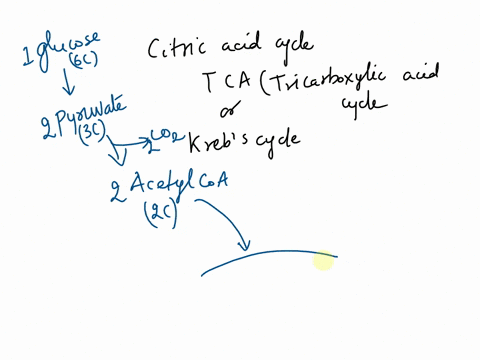 1 glucose
(6C)
2 Pyruvate
(3C)
2CO2
2 Acetyl CoA
(2C)
Citric acid cycle
TCA (Tricarboxylic acid
cycle
or
Kreb's cycle